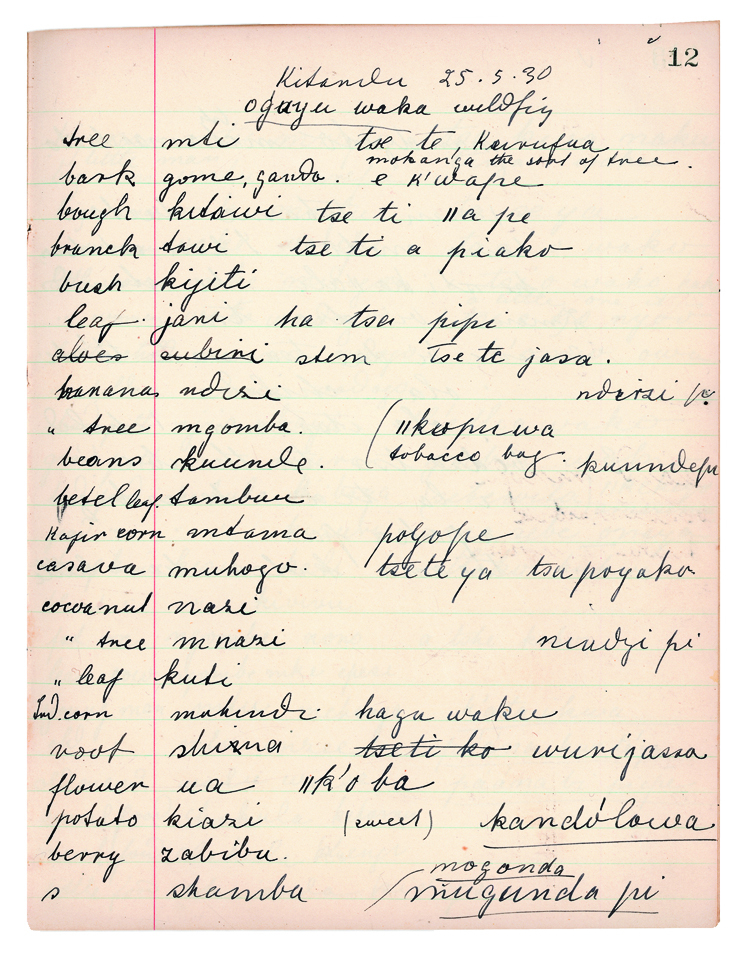 12
Kitandu 25.5.30
oguyu waka wildfig
tree mti tse te, Kurufua
mohanga the sort of tree.
bark gome, ganda. e K'wape
bough kitawi tse ti ǁa pe
branch tawi tse ti a piako
bush kijiti
leaf jani ha tsa pipi
aloes subiri stem tse te jasa.
bananas ndizi ndizi pe
" tree mgomba. (ǁkopuwa
beans kuunde. (tobacco bag. kuundepu
betel leaf. tambuu
Kafir corn mtama pogope
casava muhogo. tsete ya tsu poyako
cocoanut nazi
" tree mnazi nindzi pi
" leaf kuti
Ind. corn muhindi hagu waku
root shizna tseti ko wurijassa
flower ua ǁk'o ba
potato kiazi (sweet) kandólowa
berry zabibu.
mogonda
s shamba / mugunda pi